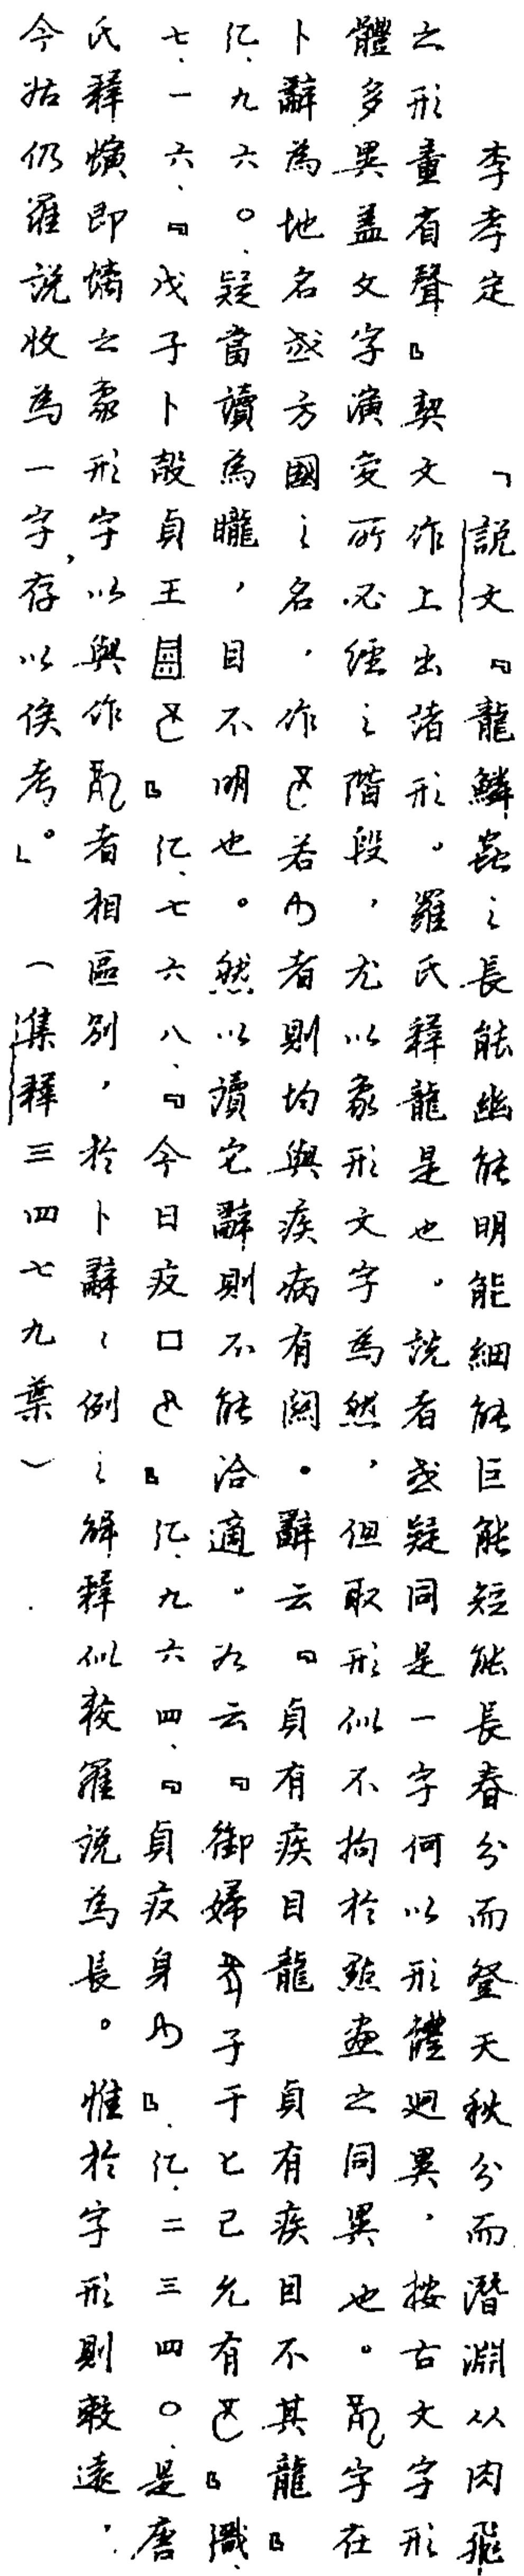 李孝定　「說文『龍鱗蟲之長能幽能明能細能巨能短能長春分而登天秋分而潛淵从肉飛
之形童省聲』契文作上出諸形。羅氏釋龍是也。說者或疑同是一字何以形體迥異，按古文字形
體多異蓋文字演變所必經之階段，尤以象形文字為然，但取形似不拘於點畫之同異也。字在
卜辭為地名或方國之名，作若者則均與疾病有關。辭云『貞有疾目龍　貞有疾目不其龍』
乙、九六〇、疑當讀為矓，目不明也。然以讀它辭則不能洽適。如云『御婦子于匕己允有』
七、一六、『戊子卜㱿貞王』乙、七六八、『今日疫口』乙、九六四、『貞疾身』、乙、二三四〇、是唐
氏釋即之象形字以與作者相區別，於卜辭辭例之解釋似較羅說為長。惟於字形則較遠，
今姑仍羅說收為一字，存以俟考。」（集釋三四七九葉）